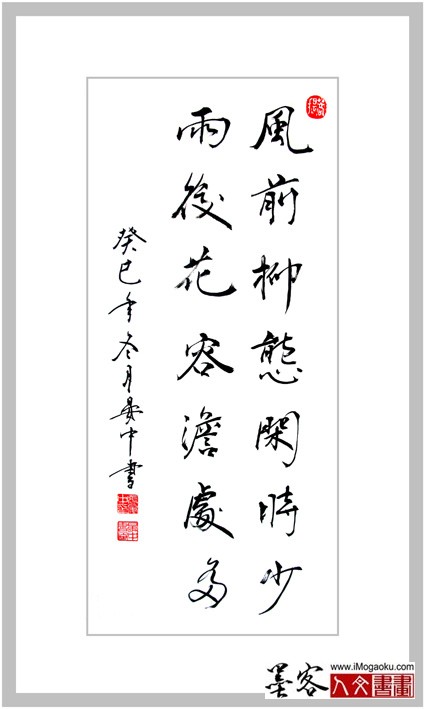 風前柳態閑時少
雨後花容澹處多
癸巳年冬月晏中書
墨客
www.iMogaoku.com
人文書畫